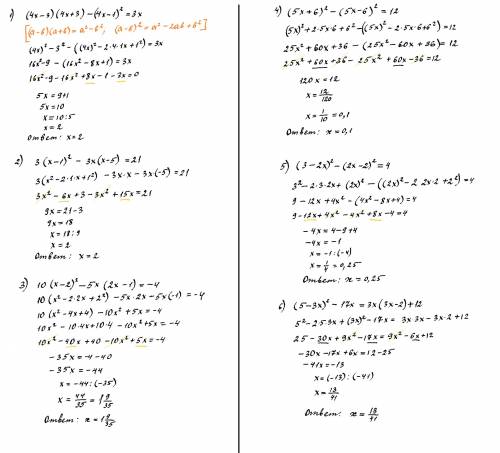 1) (4x-3)(4x+3)-(4x-1)²=3x
[(a-b)(a+b)=a²-b²; (a-b)²=a²-2ab+b²]
(4x)²-3²-((4x)²-2·4x·1+1²)=3x
16x²-9-(16x²-8x+1)=3x
16x²-9-16x²+8x-1-3x=0
5x=9+1
5x=10
x=10:5
x=2
Ответ: x=2
2) 3(x-1)²-3x(x-5)=21
3(x²-2·1·x+1²)-3x·x-3x·(-5)=21
3x²-6x+3-3x²+15x=21
9x=21-3
9x=18
x=18:9
x=2
Ответ: x=2
3) 10(x-2)²-5x(2x-1)=-4
10(x²-2·2x+2²)-5x·2x-5x(-1)=-4
10(x²-4x+4)-10x²+5x=-4
10x²-10·4x+10·4-10x²+5x=-4
10x²-40x+40-10x²+5x=-4
-35x=-4-40
-35x=-44
x=-44:(-35)
x=44/35=1 9/35
Ответ: x=1 9/35
4) (5x+6)²-(5x-6)²=12
(5x)²+2·5x·6+6²-((5x)²-2·5x·6+6²)=12
25x²+60x+36-(25x²-60x+36)=12
25x²+60x+36-25x²+60x-36=12
120x=12
x=12/120
x=1/10=0,1
Ответ: x=0,1
5) (3-2x)²-(2x-2)²=4
3²-2·3·2x+(2x)²-((2x)²-2·2x·2+2²)=4
9-12x+4x²-(4x²-8x+4)=4
9-12x+4x²-4x²+8x-4=4
-4x=4-9+4
-4x=-1
x=-1:(-4)
x=1/4=0,25
Ответ: x=0,25
6) (5-3x)²-17x=3x(3x-2)+12
5²-2·5·3x+(3x)²-17x=3x·3x-3x·2+12
25-30x+9x²-17x=9x²-6x+12
-30x-17x+6x=12-25
-41x=-13
x=(-13):(-41)
x=13/41
Ответ: x=13/41